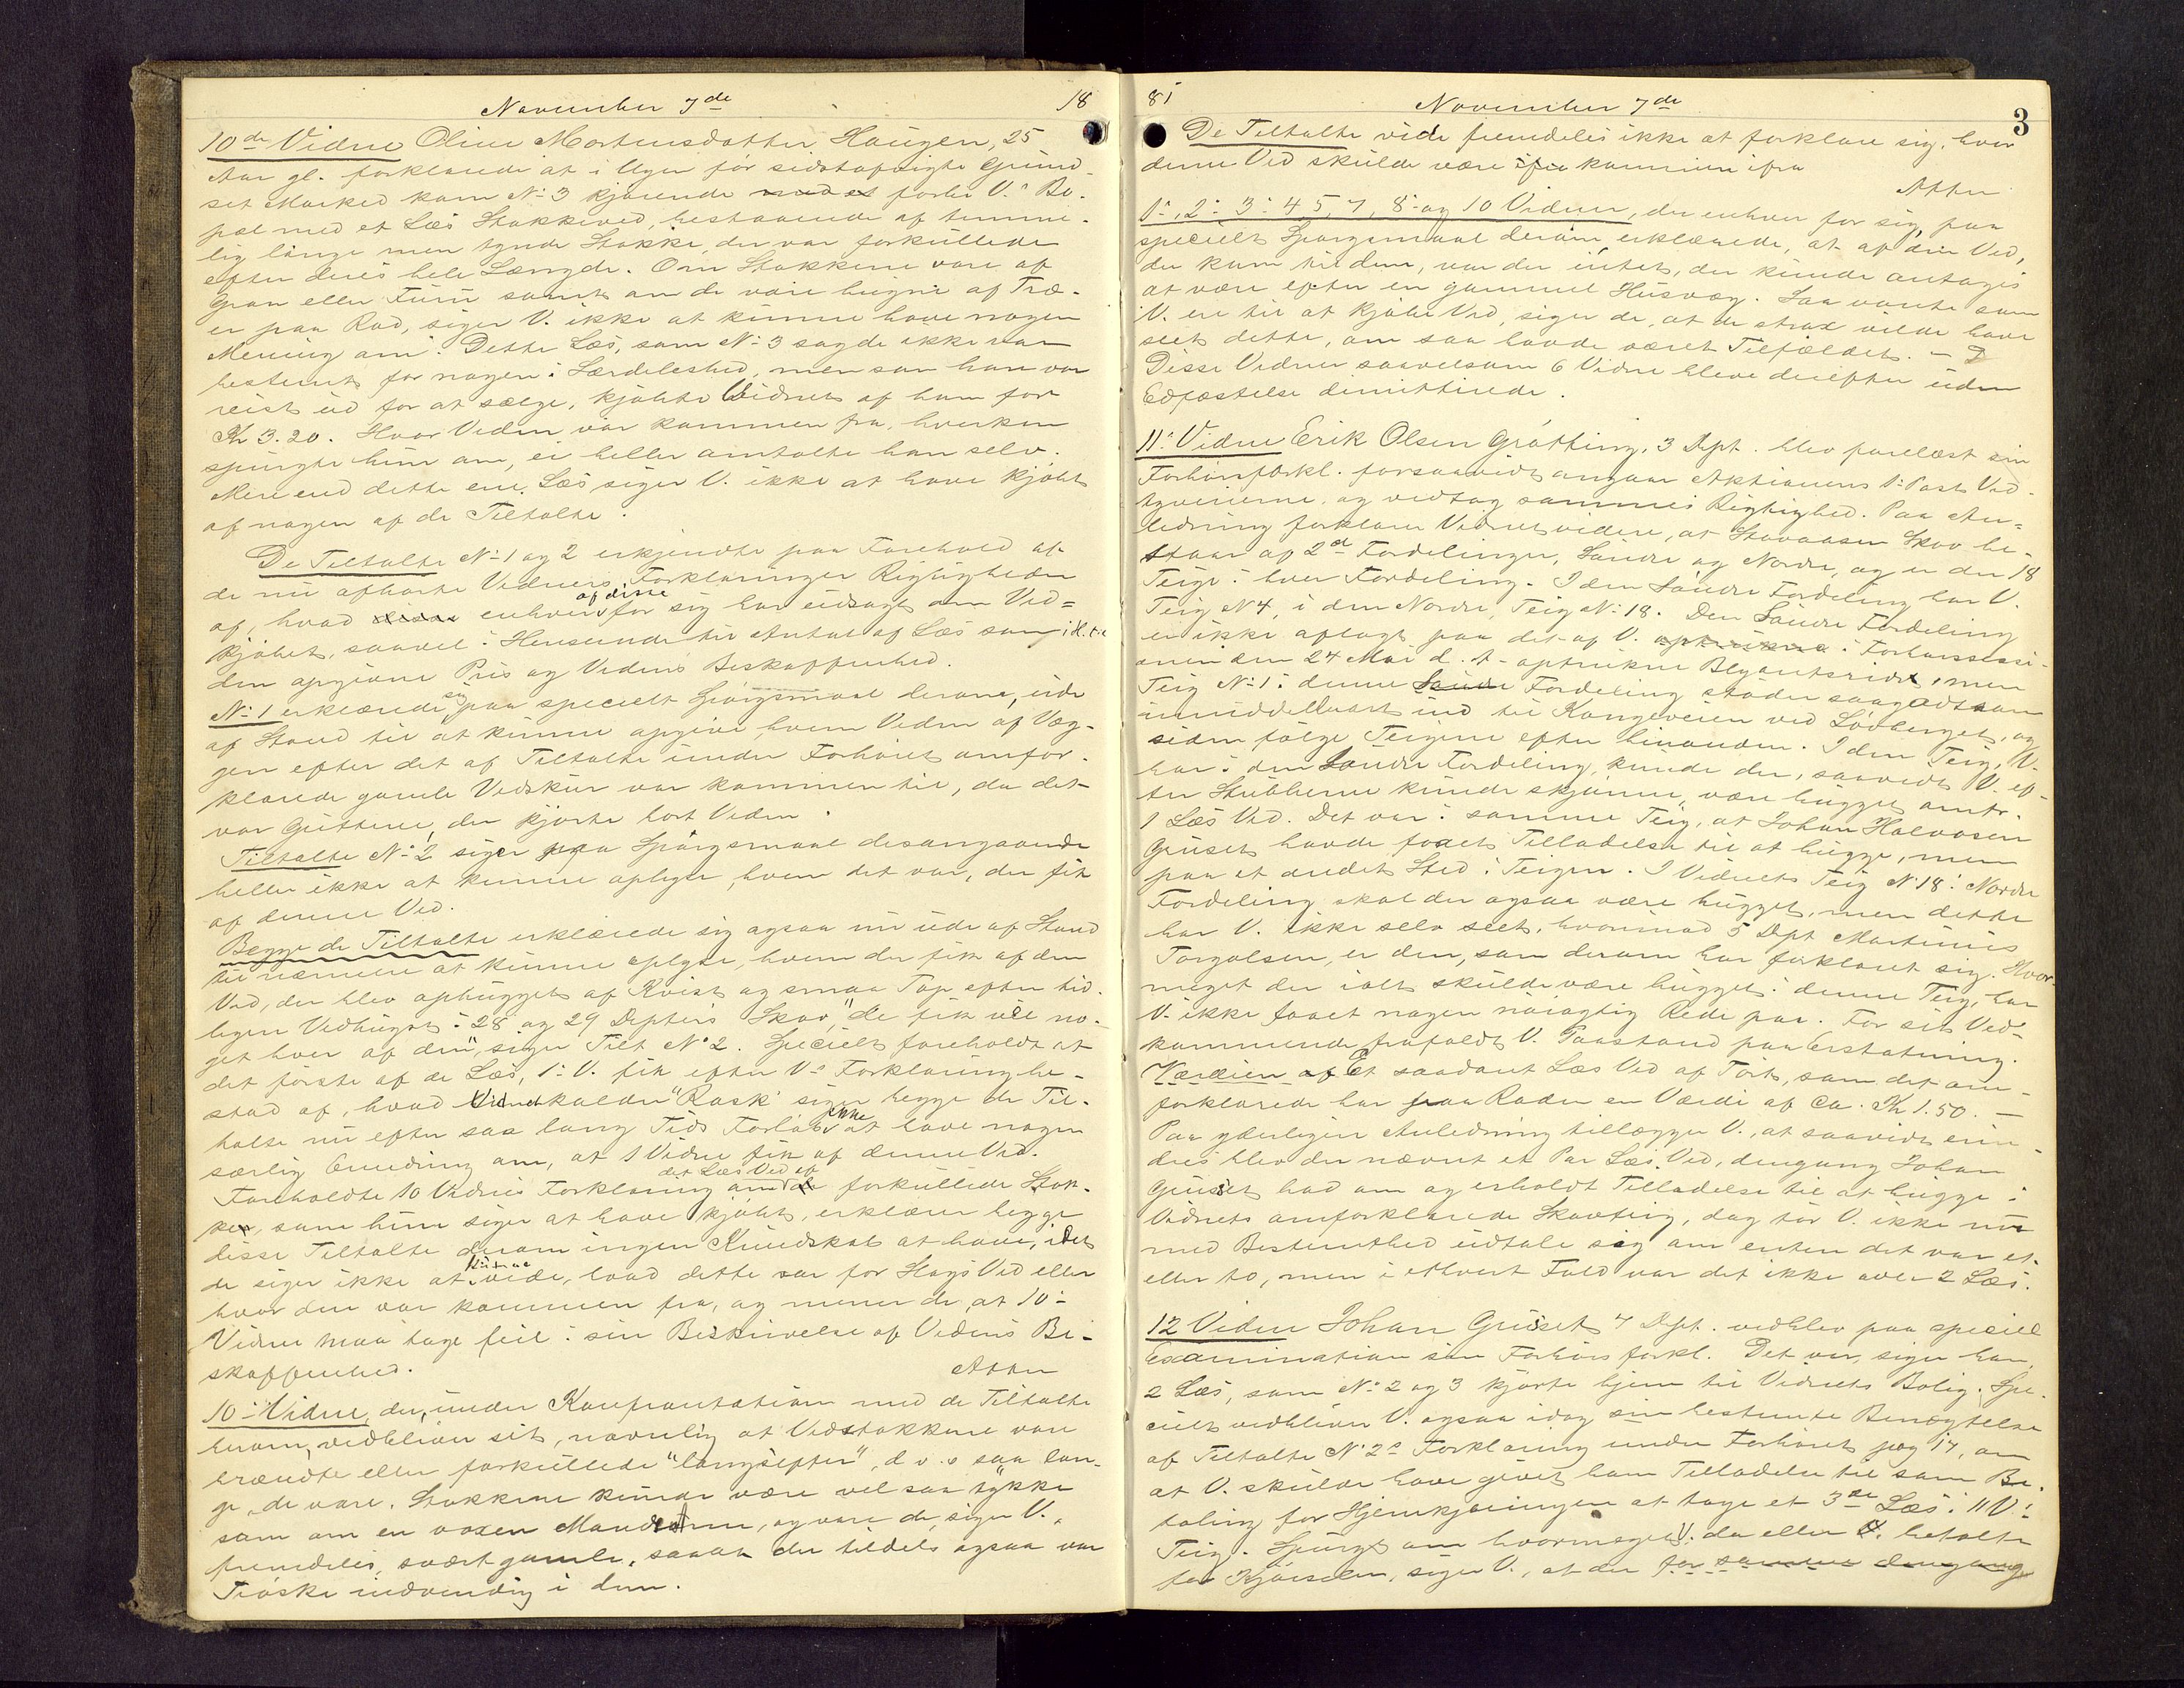 November 7de 18
10de Vidne Oline Mortensdatter Haugen, 25
Aar gl. forklarede at i Ugen før sidstafvigte Grund-
set Marked kom No 3 kjørende med et forbi V.s Bo-
pæl med et Læs Stokkeved, bestaaende af temme-
lig lange men tynde Stokke, der var forkullede
efter deres hele Længde. Om Stokkene vare af
Gran eller Furu samt om de vare hugne af Træ-
er paa Rod, siger V. ikke at kunne have nogen
Mening om. Dette Læs, som No 3 sagde ikke var
bestemt for nogen i Særdeleshed, men som han var
reist ud for at sælge, kjøbte Vidnet af ham for
Kr 3.20. Hvor Veden var kommen fra, hverken
spurgte hun om, ei heller omtalte han selv.
Mere end dette ene Læs siger V. ikke at have kjøbt
af nogen af de Tiltalte.
De Tiltalte No 1 og 2 erkjendte paa Forehold af
de nu afhørte Vidners Forklaringer Rigtigheden
af, hvad disse enhver af disse for sig har udsagt om Ved-
kjøbet, saavel i Henseende til Antal af Læs som i H. t. t.
den opgivne Pris og Vedens Beskaffenhed.
No 1 erklærede sig paa specielt Spørgsmaal derom, ude
af Stand til at kunne opgive, hvem Veden af Væg-
gen efter det af Tiltalte under Forhøret omfor-
klarede gamle Vedskur var kommen til, da det
var Gutterne, der kjørte bort Veden.
Tiltalte No 2 siger paa Spørgsmaal desangaaende
heller ikke at kunne oplyse, hvem det var, der fik
af denne Ved.
Begge de Tiltalte erklærede sig ogsaa nu ude af Stand
til nærmere at kunne oplyse, hvem der fik af den
Ved, der blev ophugget af Kvist og smaa Top efter tid-
ligere Vedhugst i 28 og 29 Depters Skov, "de fik vel no-
get hver af den", siger Tilt. No 2. Specielt foreholdt at
det første af de Læs, 1: V. fik efter V.s Forklaring be-
stod af, hvad Vidnet kalder "Rask" siger begge de Til-
talte nu efter saa lang Tids Forløb ikke at have nogen
særlig Erindring om, at 1 Vidne fik af denne Ved.
Foreholdte 10 Vidnes Forklaring om det Læs Ved af forkullede Stok-
ker, som hun siger at have kjøbt, erklærer begge
disse Tiltalte derom ingen Kundskab at have, idet
de siger ikke at kunne vide, hvad dette var for Slags Ved eller
hvor den var kommen fra, og mener de, at 10:
Vidne maa tage feil i sin Beskrivelse af Vedens Be-
skaffenhed.
Atter
10: Vidne, der, under Konfrontation med de Tiltalte
herom, vedbliver sit, navnlig at Vedstokkene vare
brændte eller forkullede "langsefter", d. v. s saa lan-
ge de vare. Stokkene kunde være vel saa tykke
som om en voxen Mandsarm, og vare de, siger V.,
fremdeles, svært gamle, saaat der tildels ogsaa var
Trøske indvendig i dem.
81 November 7de 3
De Tiltalte vide fremdeles ikke at forklare sig, hvor
denne Ved skulde være ifra kommen ifra
Atter
1:, 2: 3: 4 5, 7, 8: og 10 Vidner, der enhver for sig, paa
specielt Spørgsmaal derom, erklærede, at af den Ved,
der kom til dem, var der intet, der kunde antages
at være efter en gammel Husvæg. Saa vante som
V. ere til at kjøbe Ved, siger de, at de strax vilde have
seet dette, om saa havde været Tilfældet. –
Disse Vidner saavelsom 6 Vidne bleve derefter uden
Edfæstelse dimitterede.
11: Vidne Erik Olsen Grøtting, 3 Dept. blev forelæst sin
Forhørsforkl. forsaavidt angaar Aktionens 1: Post Ved-
tyverierne, og vedtog sammes Rigtighed. Paa An-
ledning forklarer Vidnet videre, at Stavaasen Skov be-
staar af 2de Fordelinger, Søndre og Nordre, og er der 18
Teige i hver Fordeling. I den Søndre Fordeling har V.
Teig No 4, i den Nordre, Teig No 18. Den Søndre Fordeling
er ikke aflagt paa det af V. optrukne i Forhørssessi-
onen den 24 Mai d. A. optrukne Blyantsrids, men
Teig No 1 i denne Søndre Fordeling støder saagodtsom
umiddelbart ind til Kongeveien ved Løvberget, og
siden følge Teigene efter hinanden. I den Teig, V.
har i den Søndre Fordeling, kunde der, saavidt V. ef-
ter Stubberne kunde skjønne, være hugget omtr.
1 Læs Ved. Det var i samme Teig, at Johan Halvorsen
Gruset havde faaet Tilladelse til at hugge, men
paa et andet Sted i Teigen. I Vidnets Teig No 18 i Nordre
Fordeling skal der ogsaa være hugget, men dette
har V. ikke selv seet, hvorimod 5 Dpt Martinus
Torgalsen, er den, som derom har forklaret sig. Hvor-
meget der ialt skulde være hugget i denne Teig, har
V. ikke faaet nogen nøiagtig Rede paa. For sit Ved-
kommende frafaldt V. Paastand paa Erstatning.
Værdien af Et saadant Læs Ved af Tørt, som det om-
forklarede har paa Roden en Værdi af ca. Kr 1.50. –
Paa yderligere Anledning tillægger V., at saavidt erin-
dres blev der nævnt et Par Læs Ved, dengang Johan
Gruset bad om og erholdt Tilladelse til at hugge i
Vidnets omforklarede Skovteig, dog tør V. ikke nu
med Bestemthed udtale sig om enten det var et
eller to, men i ethvert Fald var det ikke over 2 Læs.
12 Vidne Johan Gruset 7 Dept. vedblev paa speciel
Examination sin Forhørsforkl. Det var, siger han,
2 Læs, som No 2 og 3 kjørte hjem til Vidnets Bolig. Spe-
cielt vedbliver V. ogsaa idag sin bestemte Benægtelse
af Tiltalte No 2s Forklaring under Forhøret pag 17, om
at V. skulde have givet ham Tilladelse til som Be-
taling for Hjemkjøringen at tage et 3de Læs i 11 V.s
Teig. Spurgt om hvormeget V. da eller betalte
for Kjørselen, siger V., at der for samme dengang